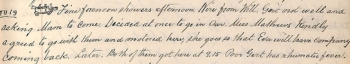 Fine forenoon showers afternoon Wire from Will. Gent not well and
asking Mam to come. Decided at once to go in Car Miss Mathews Kindly
agreed to go with them and motored her, she goes so that Eva will have company
Coming back. Later. Both of them got here at 9.15 Poor Gent has rheumatic fever.